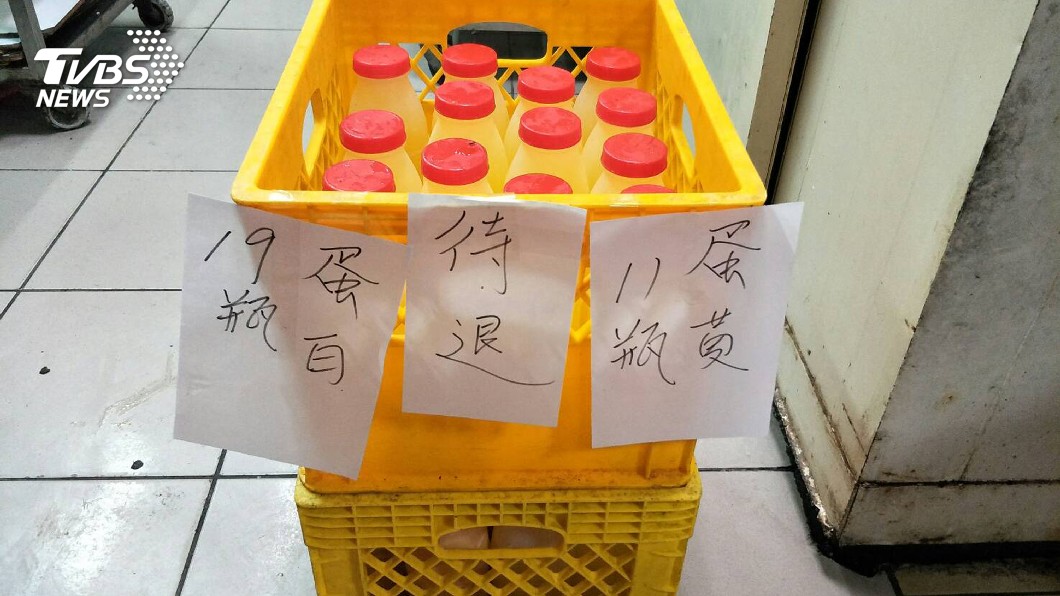 TVBS
NEWS
蛋白
19瓶
待退
蛋黄
11瓶